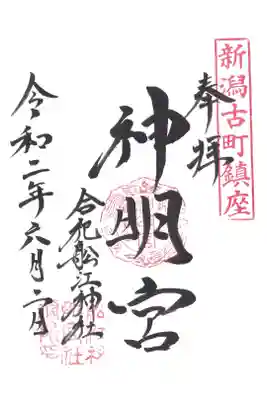 新潟古町鎮座
奉拝
神明宮
合祀船江神社
令和二年六月二日